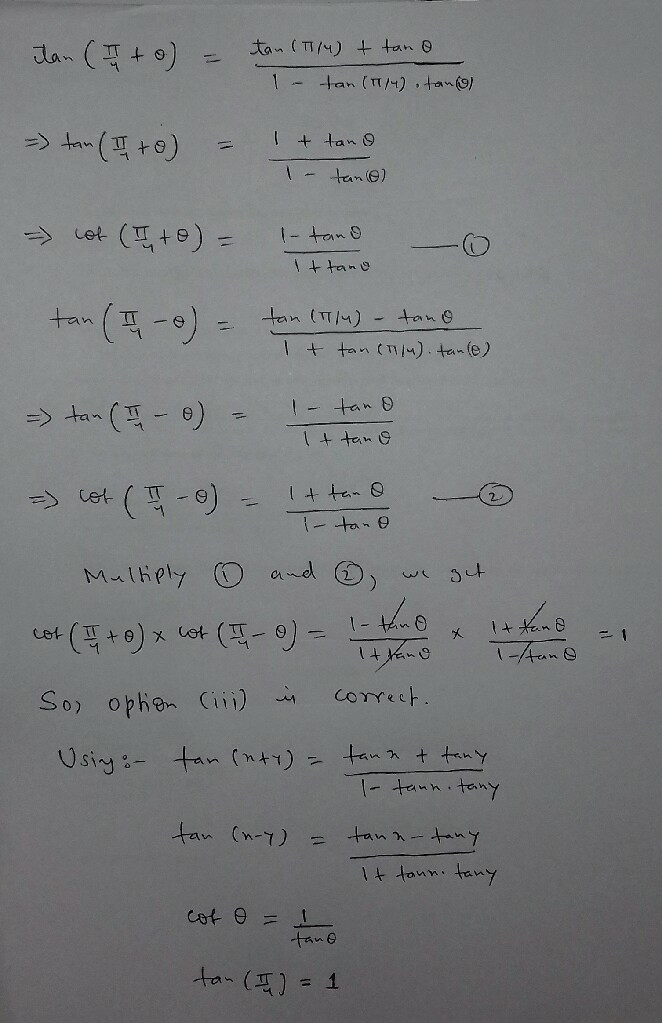 tan (π/4 + θ) = (tan (π/4) + tan θ) / (1 - tan (π/4) . tan(θ))
=> tan (π/4 + θ) = (1 + tan θ) / (1 - tan(θ))
=> cot (π/4 + θ) = (1 - tan θ) / (1 + tan θ) — ①
tan (π/4 - θ) = (tan (π/4) - tan θ) / (1 + tan (π/4) . tan(θ))
=> tan (π/4 - θ) = (1 - tan θ) / (1 + tan θ)
=> cot (π/4 - θ) = (1 + tan θ) / (1 - tan θ) — ②
Multiply ① and ②, we get
cot (π/4 + θ) x cot (π/4 - θ) = (1 - tan θ) / (1 + tan θ) x (1 + tan θ) / (1 - tan θ) = 1
So, option (iii) is correct.
Using :- tan (x+y) = (tan x + tan y) / (1 - tan x . tan y)
tan (x-y) = (tan x - tan y) / (1 + tan x . tan y)
cot θ = 1 / tan θ
tan (π/4) = 1